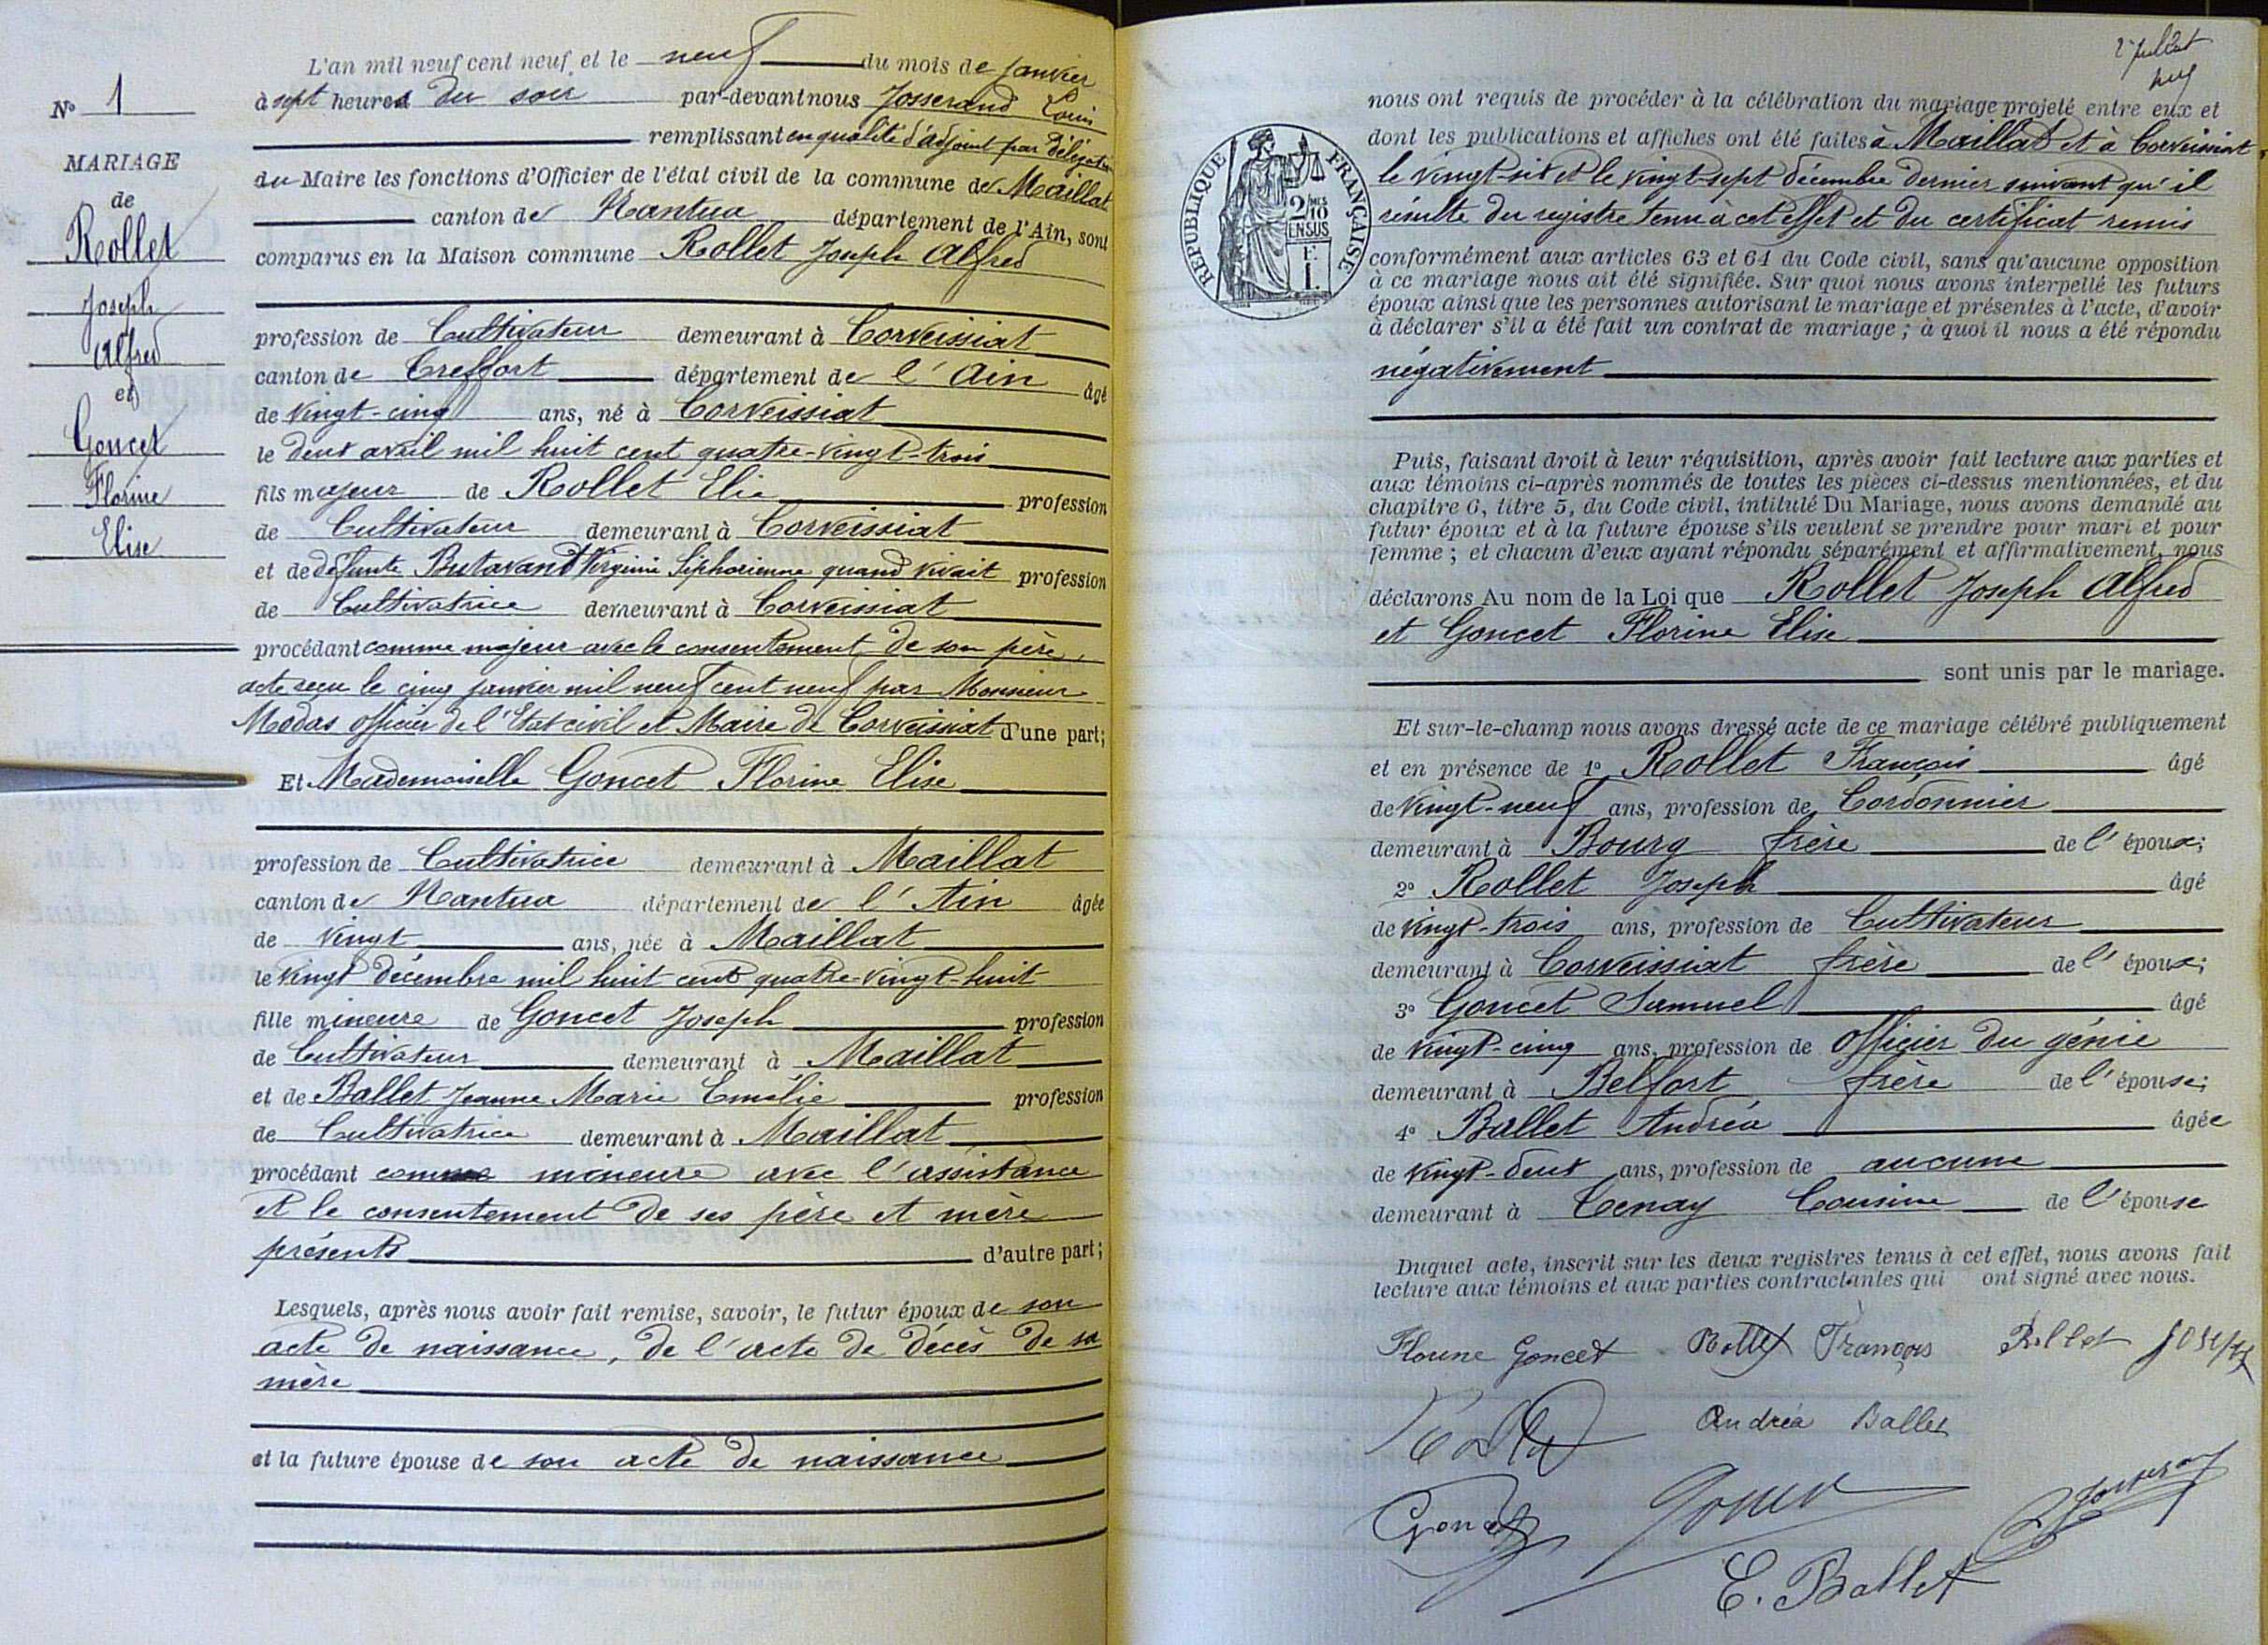 N° 1
MARIAGE
de
Rollet
Joseph
Alfred
et
Goncet
Florine
Elise
L'an mil neuf cent neuf et le neuf du mois de janvier
à sept heures du soir par-devant nous Josserand Louis
remplissant en qualité d'adjoint par délégation
du Maire les fonctions d'Officier de l'état civil de la commune de Maillat
canton de Nantua département de l'Ain, sont
comparus en la Maison commune Rollet Joseph Alfred
profession de Cultivateur demeurant à Corveissiat
canton de Treffort département de l'Ain âgé
de vingt-cinq ans, né à Corveissiat
le deux avril mil huit cent quatre-vingt-trois
fils majeur de Rollet Elie profession
de Cultivateur demeurant à Corveissiat
et de défunte Butavand Virginie Siphorienne quand vivait profession
de Cultivatrice demeurant à Corveissiat
procédant comme majeur avec le consentement de son père,
acte reçu le cinq janvier mil neuf cent neuf par Monsieur
Modas officier de l'Etat civil et Maire de Corveissiat d'une part;
Et Mademoiselle Goncet Florine Elise
profession de Cultivatrice demeurant à Maillat
canton de Nantua département de l'Ain âgée
de vingt ans, née à Maillat
le vingt décembre mil huit cent quatre-vingt-huit
fille mineure de Goncet Joseph profession
de Cultivateur demeurant à Maillat
et de Ballet Jeanne Marie Emélie profession
de Cultivatrice demeurant à Maillat
procédant comme mineure avec l'assistance
et le consentement de ses père et mère
présents d'autre part;
Lesquels, après nous avoir fait remise, savoir, le futur époux de son
acte de naissance, de l'acte de décès de sa
mère
et la future épouse de son acte de naissance
nous ont requis de procéder à la célébration du mariage projeté entre eux et
dont les publications et affiches ont été faites à Maillat et à Corveissiat
le vingt-six et le vingt-sept décembre dernier suivant qu'il
résulte du registre tenu à cet effet et du certificat remis
RÉPUBLIQUE FRANÇAISE
2/10
EN SUS
F.
1.
conformément aux articles 63 et 64 du Code civil, sans qu'aucune opposition
à ce mariage nous ait été signifiée. Sur quoi nous avons interpellé les futurs
époux ainsi que les personnes autorisant le mariage et présentes à l'acte, d'avoir
à déclarer s'il a été fait un contrat de mariage; à quoi il nous a été répondu
négativement
Puis, faisant droit à leur réquisition, après avoir fait lecture aux parties et
aux témoins ci-après nommés de toutes les pièces ci-dessus mentionnées, et du
chapitre 6, titre 5, du Code civil, intitulé Du Mariage, nous avons demandé au
futur époux et à la future épouse s'ils veulent se prendre pour mari et pour
femme; et chacun d'eux ayant répondu séparément et affirmativement, nous
déclarons Au nom de la Loi que Rollet Joseph Alfred
et Goncet Florine Elise
sont unis par le mariage.
Et sur-le-champ nous avons dressé acte de ce mariage célébré publiquement
et en présence de 1° Rollet François âgé
de vingt-neuf ans, profession de Cordonnier
demeurant à Bourg frère de l'époux;
2° Rollet Joseph âgé
de vingt-trois ans, profession de Cultivateur
demeurant à Corveissiat frère de l'époux;
3° Goncet Samuel âgé
de vingt-cinq ans, profession de officier du génie
demeurant à Belfort frère de l'épouse;
4° Ballet Andréa âgée
de vingt-deux ans, profession de aucune
demeurant à Tenay Cousine de l'épouse
Duquel acte, inscrit sur les deux registres tenus à cet effet, nous avons fait
lecture aux témoins et aux parties contractantes qui ont signé avec nous.
Florine Goncet Rollet François Rollet Joseph
Andréa Ballet
Goncet Josserand
E. Ballet